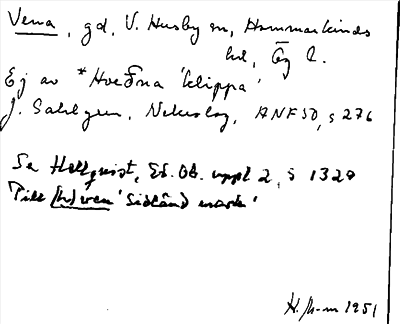 Vema, gd, V. Husby sn, Hammarkinds
hd, Ög l.
Ej av *Hveðna 'klippa'
J. Sahlgren, Nekrolog, ANF 50, s 276
Se Hellquist, Et. Ob. uppl 2, s 1329
Till (h)ven 'sidländ mark'
1951